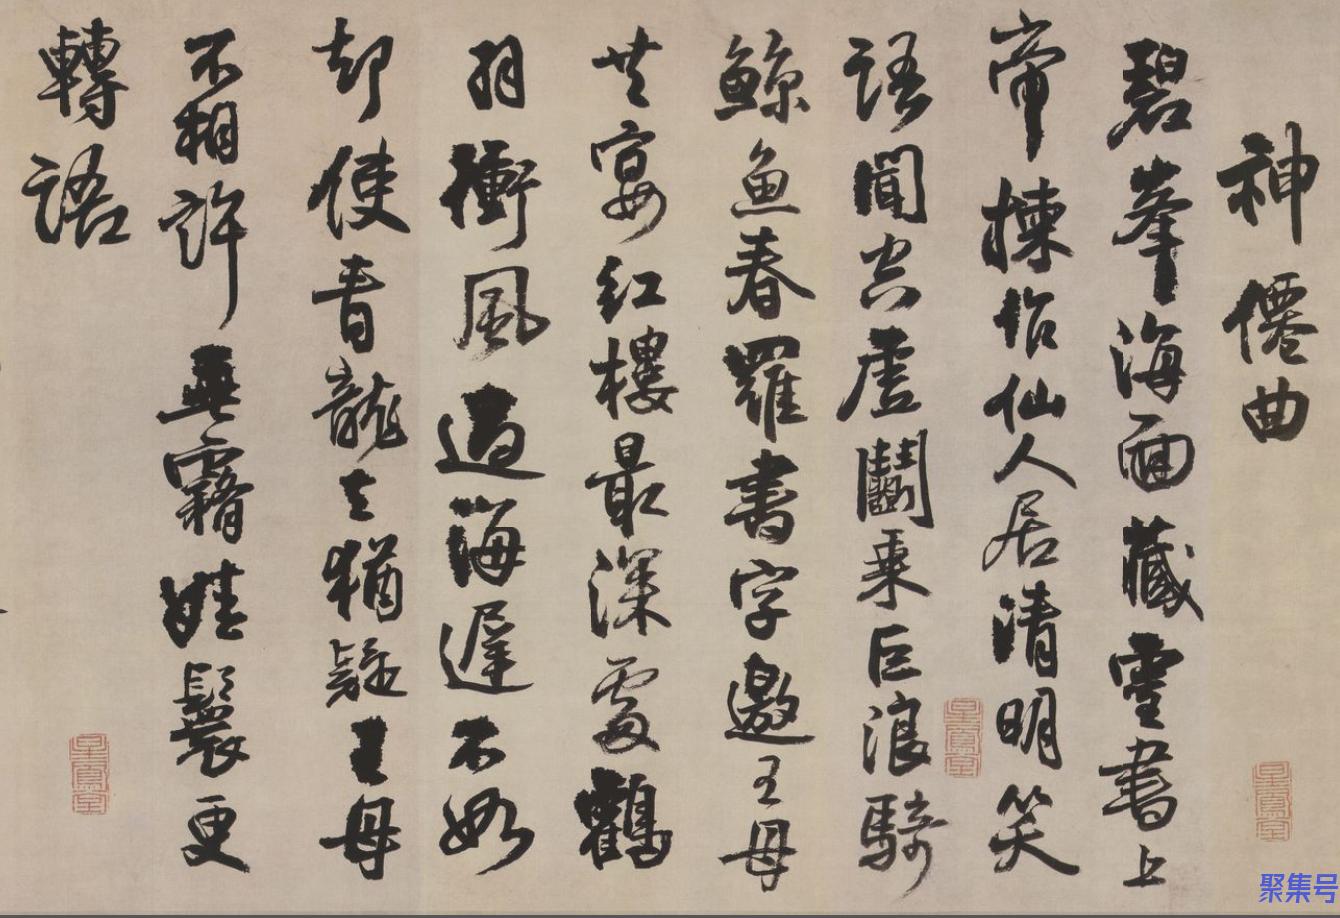 神僊曲
碧峯海面藏靈書上
帝揀作仙人居清明笑
語聞空虛鬭乘巨浪騎
鯨魚春羅書字邀王母
共宴紅樓最深處鶴
羽衝風過海遲不如
却使青龍去猶疑王母
不相許垂霧娃鬟更
轉語
聚集号